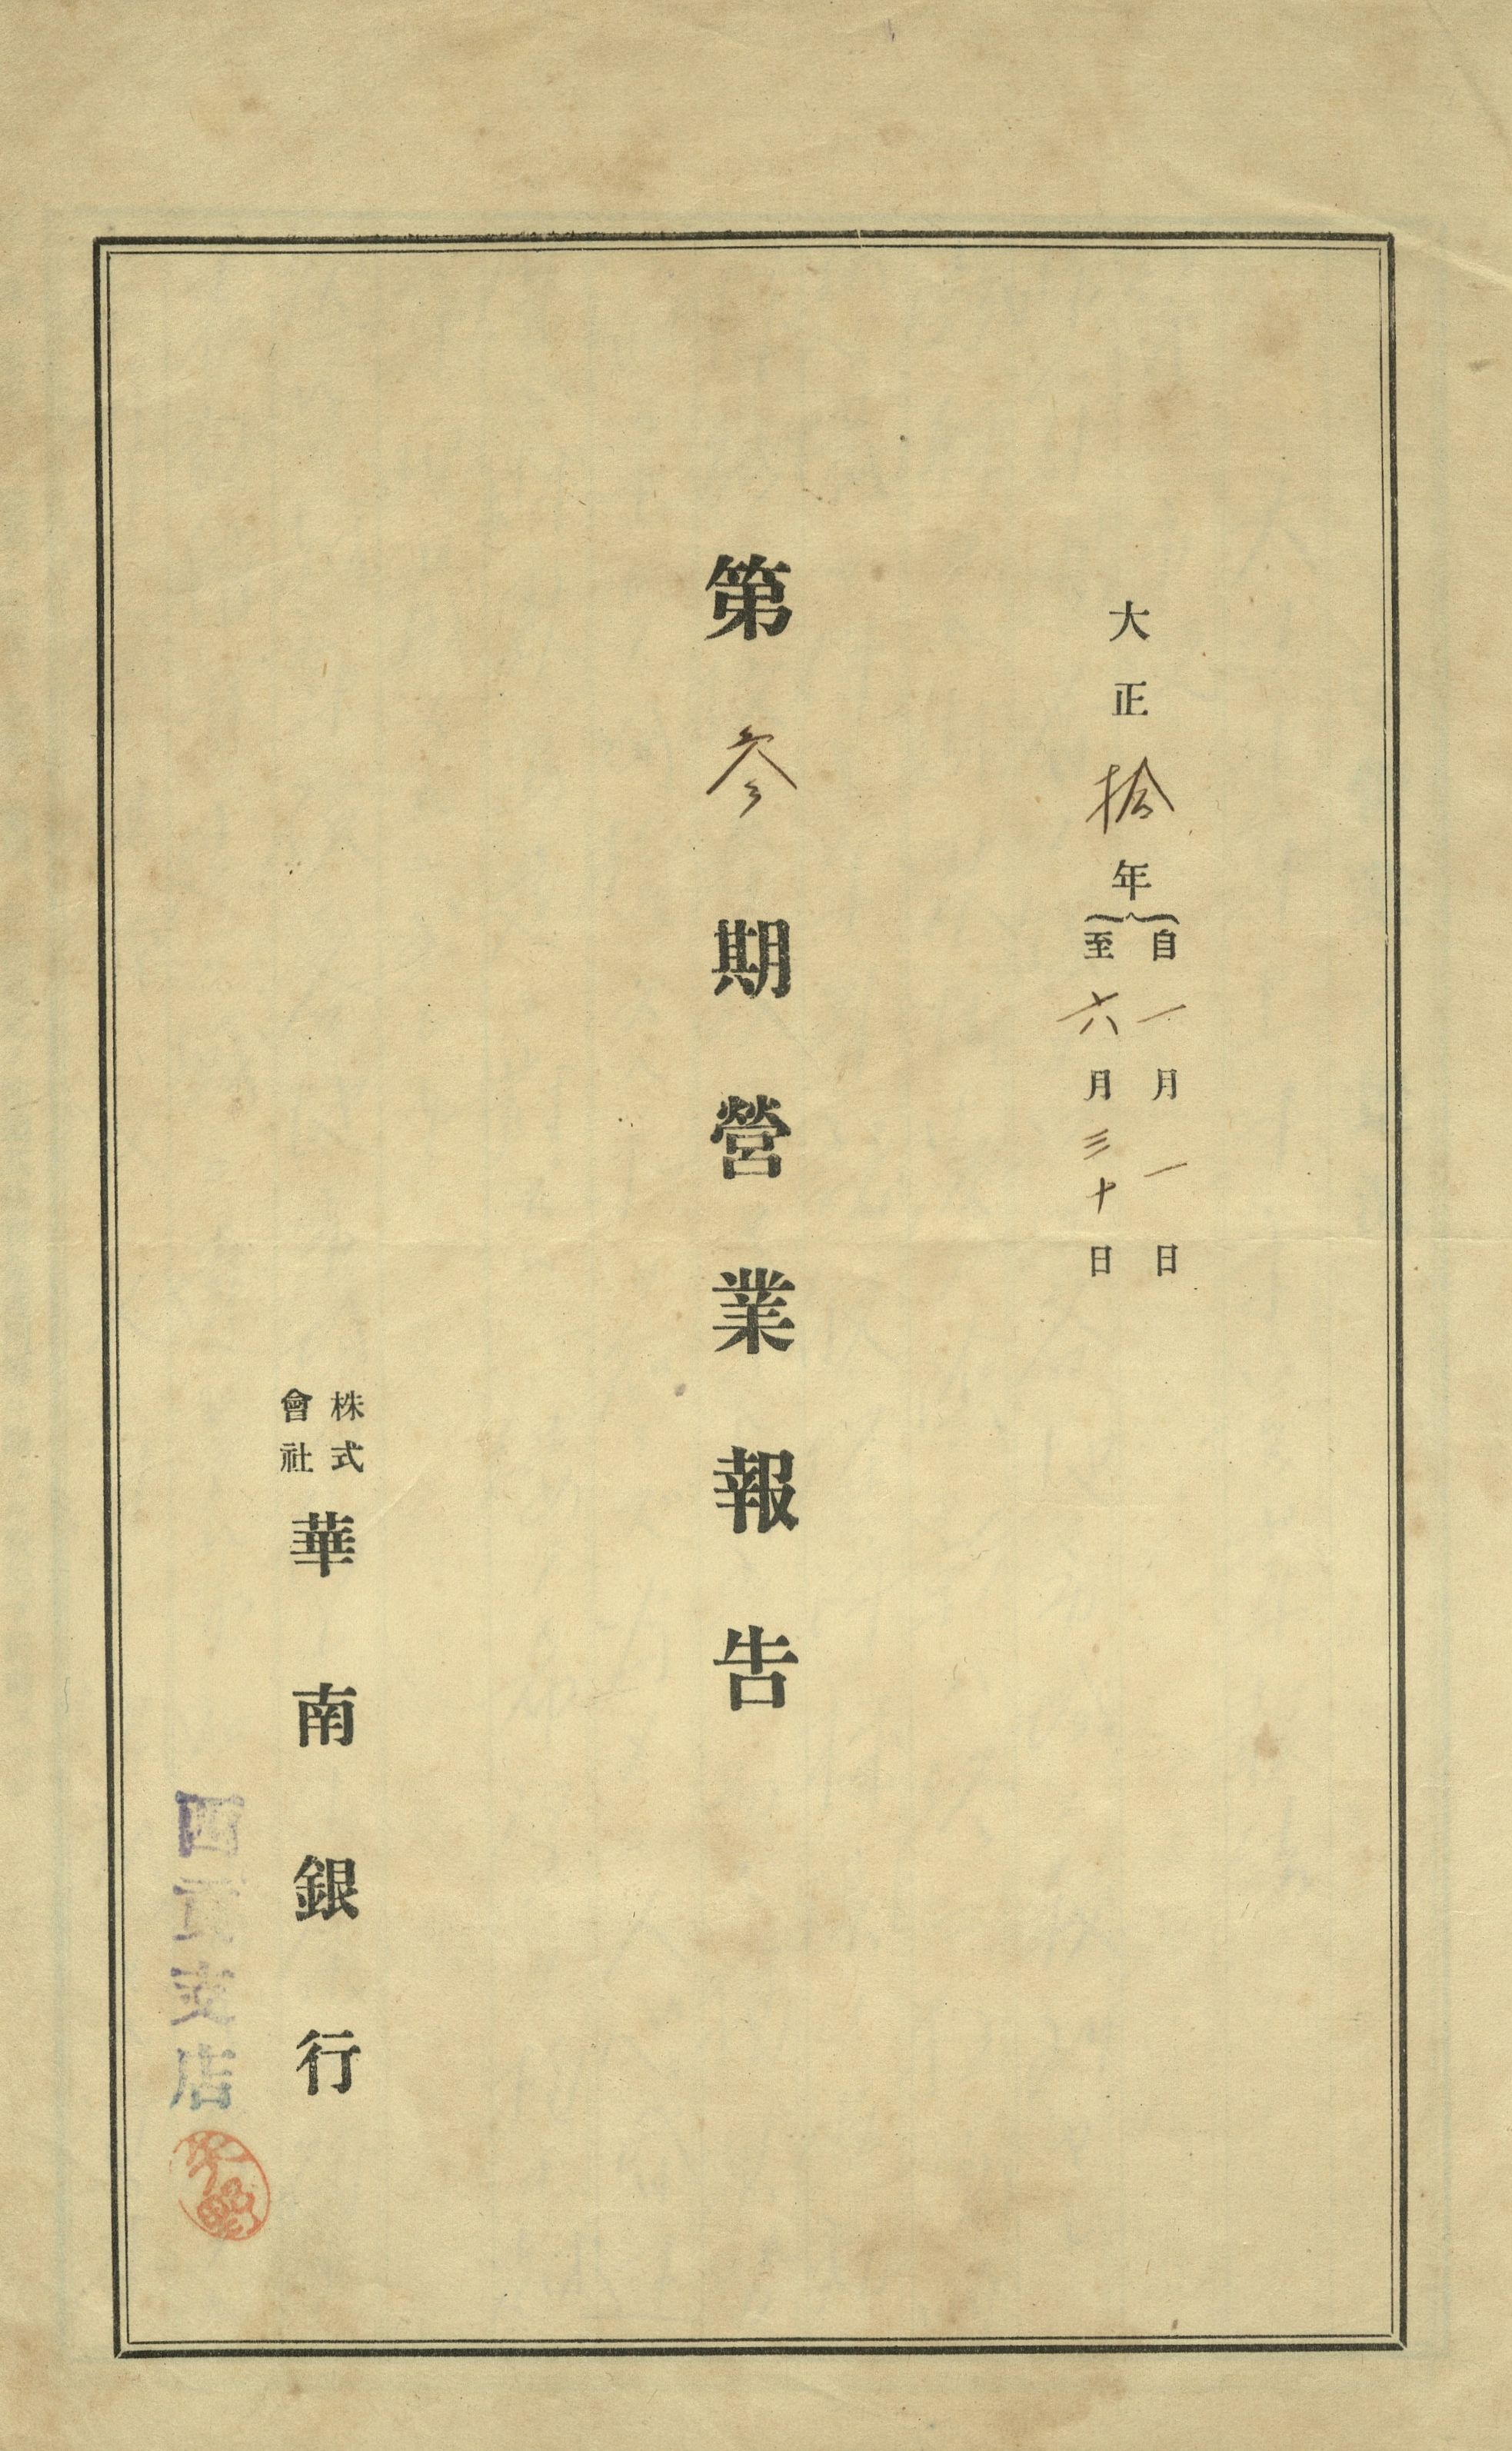 大正拾年
自一月一日
至六月三十日
第参期營業報告
株式
會社
華南銀行
西貢支店